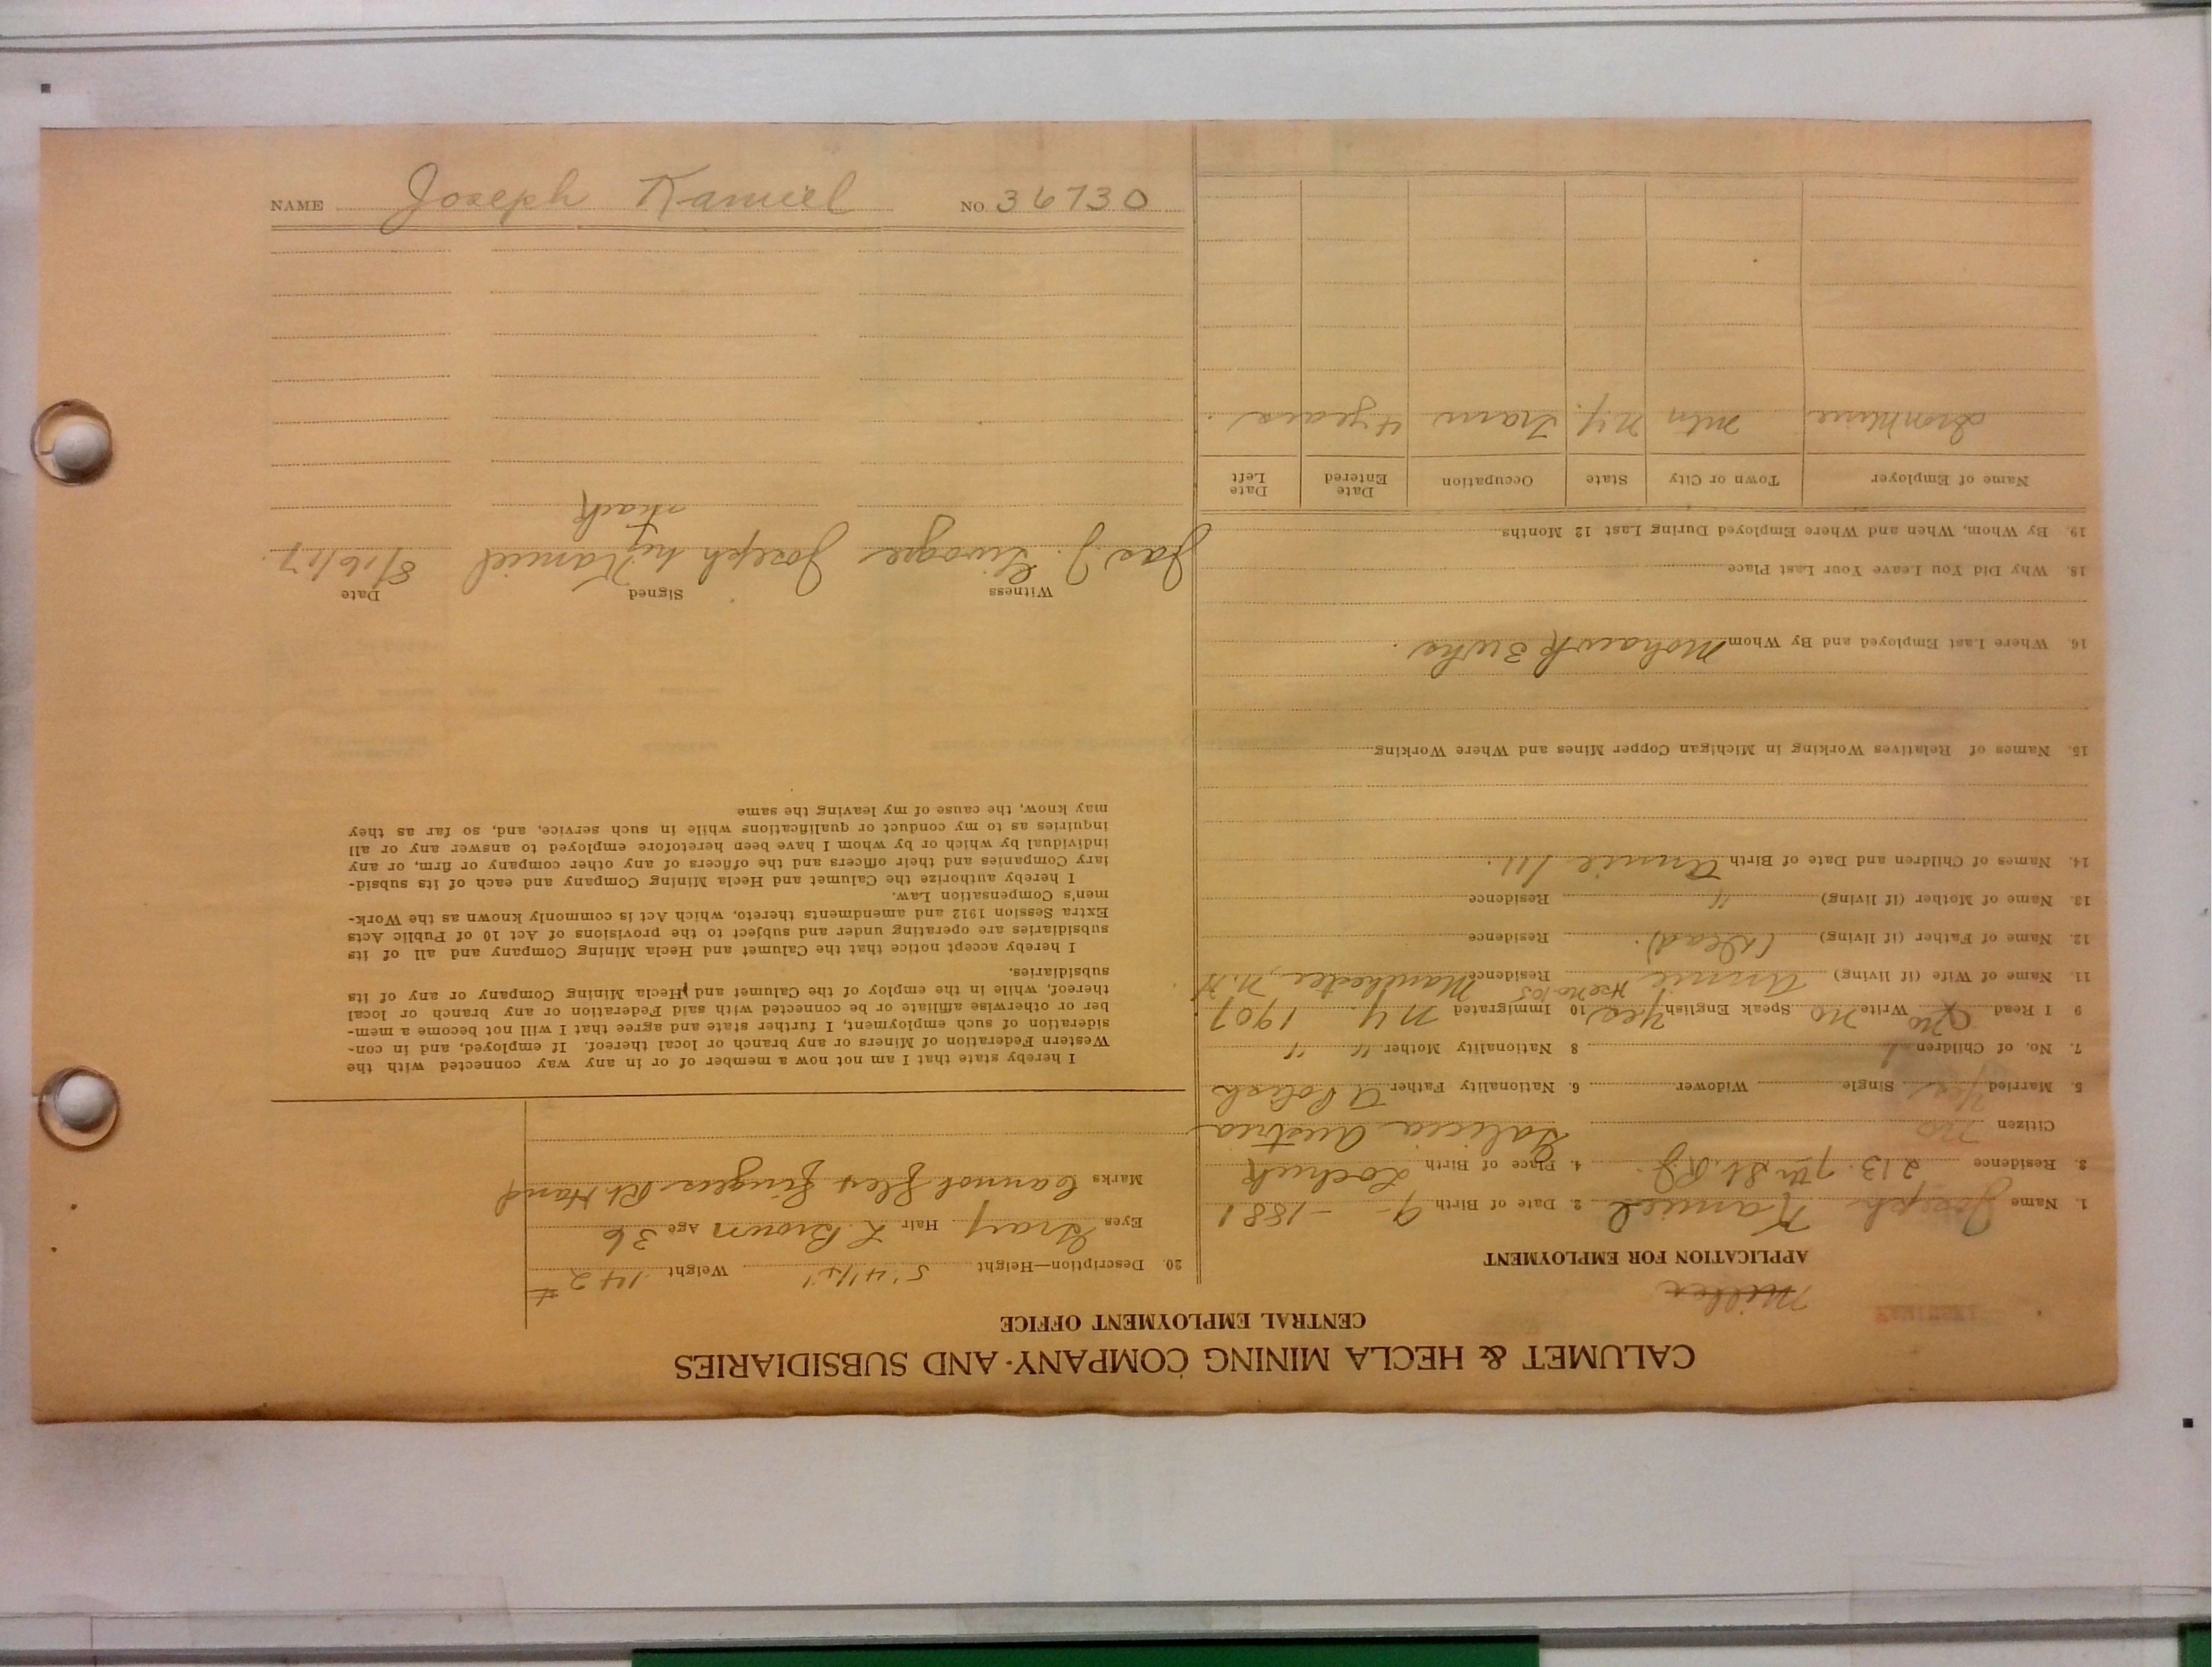 CALUMET & HECLA MINING COMPANY AND SUBSIDIARIES
CENTRAL EMPLOYMENT OFFICE
Miller
APPLICATION FOR EMPLOYMENT
1. Name Joseph Kamiel 2. Date of Birth 9 - - 1881
3. Residence 213. 7th St. R.J. 4. Place of Birth
Citizen no Galicia Austria
5. Married Yes Single Widower 6. Nationality Father A Polish
7. No. of Children 1 8 Nationality Mother " "
9 I Read No Write No Speak English Yes 10 Immigrated N.Y. 1907
Hse No 105
11. Name of Wife (if living) Annie Residence Manchester, N.H
12. Name of Father (if living) (Dead). Residence
13. Name of Mother (if living) " Residence
14. Names of Children and Date of Birth Annie
15. Names of Relatives Working in Michigan Copper Mines and Where Working
16. Where Last Employed and By Whom Mohawk 3 wks.
18. Why Did You Leave Your Last Place
19. By Whom, When and Where Employed During Last 12 Months
Name of Employer Town or City State Occupation Date Entered Date Left
Iron Mine N.Y. Tram 4 years.
20. Description—Height 5' 4 1/2" Weight 142 #
Eyes Gray Hair L. Brown Age 36
Marks Cannot flex fingers Rt Hand
I hereby state that I am not now a member of or in any way connected with the
Western Federation of Miners or any branch or local thereof. If employed, and in con-
sideration of such employment, I further state and agree that I will not become a mem-
ber or otherwise affiliate or be connected with said Federation or any branch or local
thereof, while in the employ of the Calumet and Hecla Mining Company or any of its
subsidiaries.
I hereby accept notice that the Calumet and Hecla Mining Company and all of its
subsidiaries are operating under and subject to the provisions of Act 10 of Public Acts
Extra Session 1912 and amendments thereto, which Act is commonly known as the Work-
men's Compensation Law.
I hereby authorize the Calumet and Hecla Mining Company and each of its subsid-
iary Companies and their officers and the officers of any other company or firm, or any
individual by which or by whom I have been heretofore employed to answer any or all
inquiries as to my conduct or qualifications while in such service, and, so far as they
may know, the cause of my leaving the same
Witness Signed Date
Jas. J. Joseph his Kamiel 8/16/17.
mark
NAME Joseph Kamiel NO. 36730